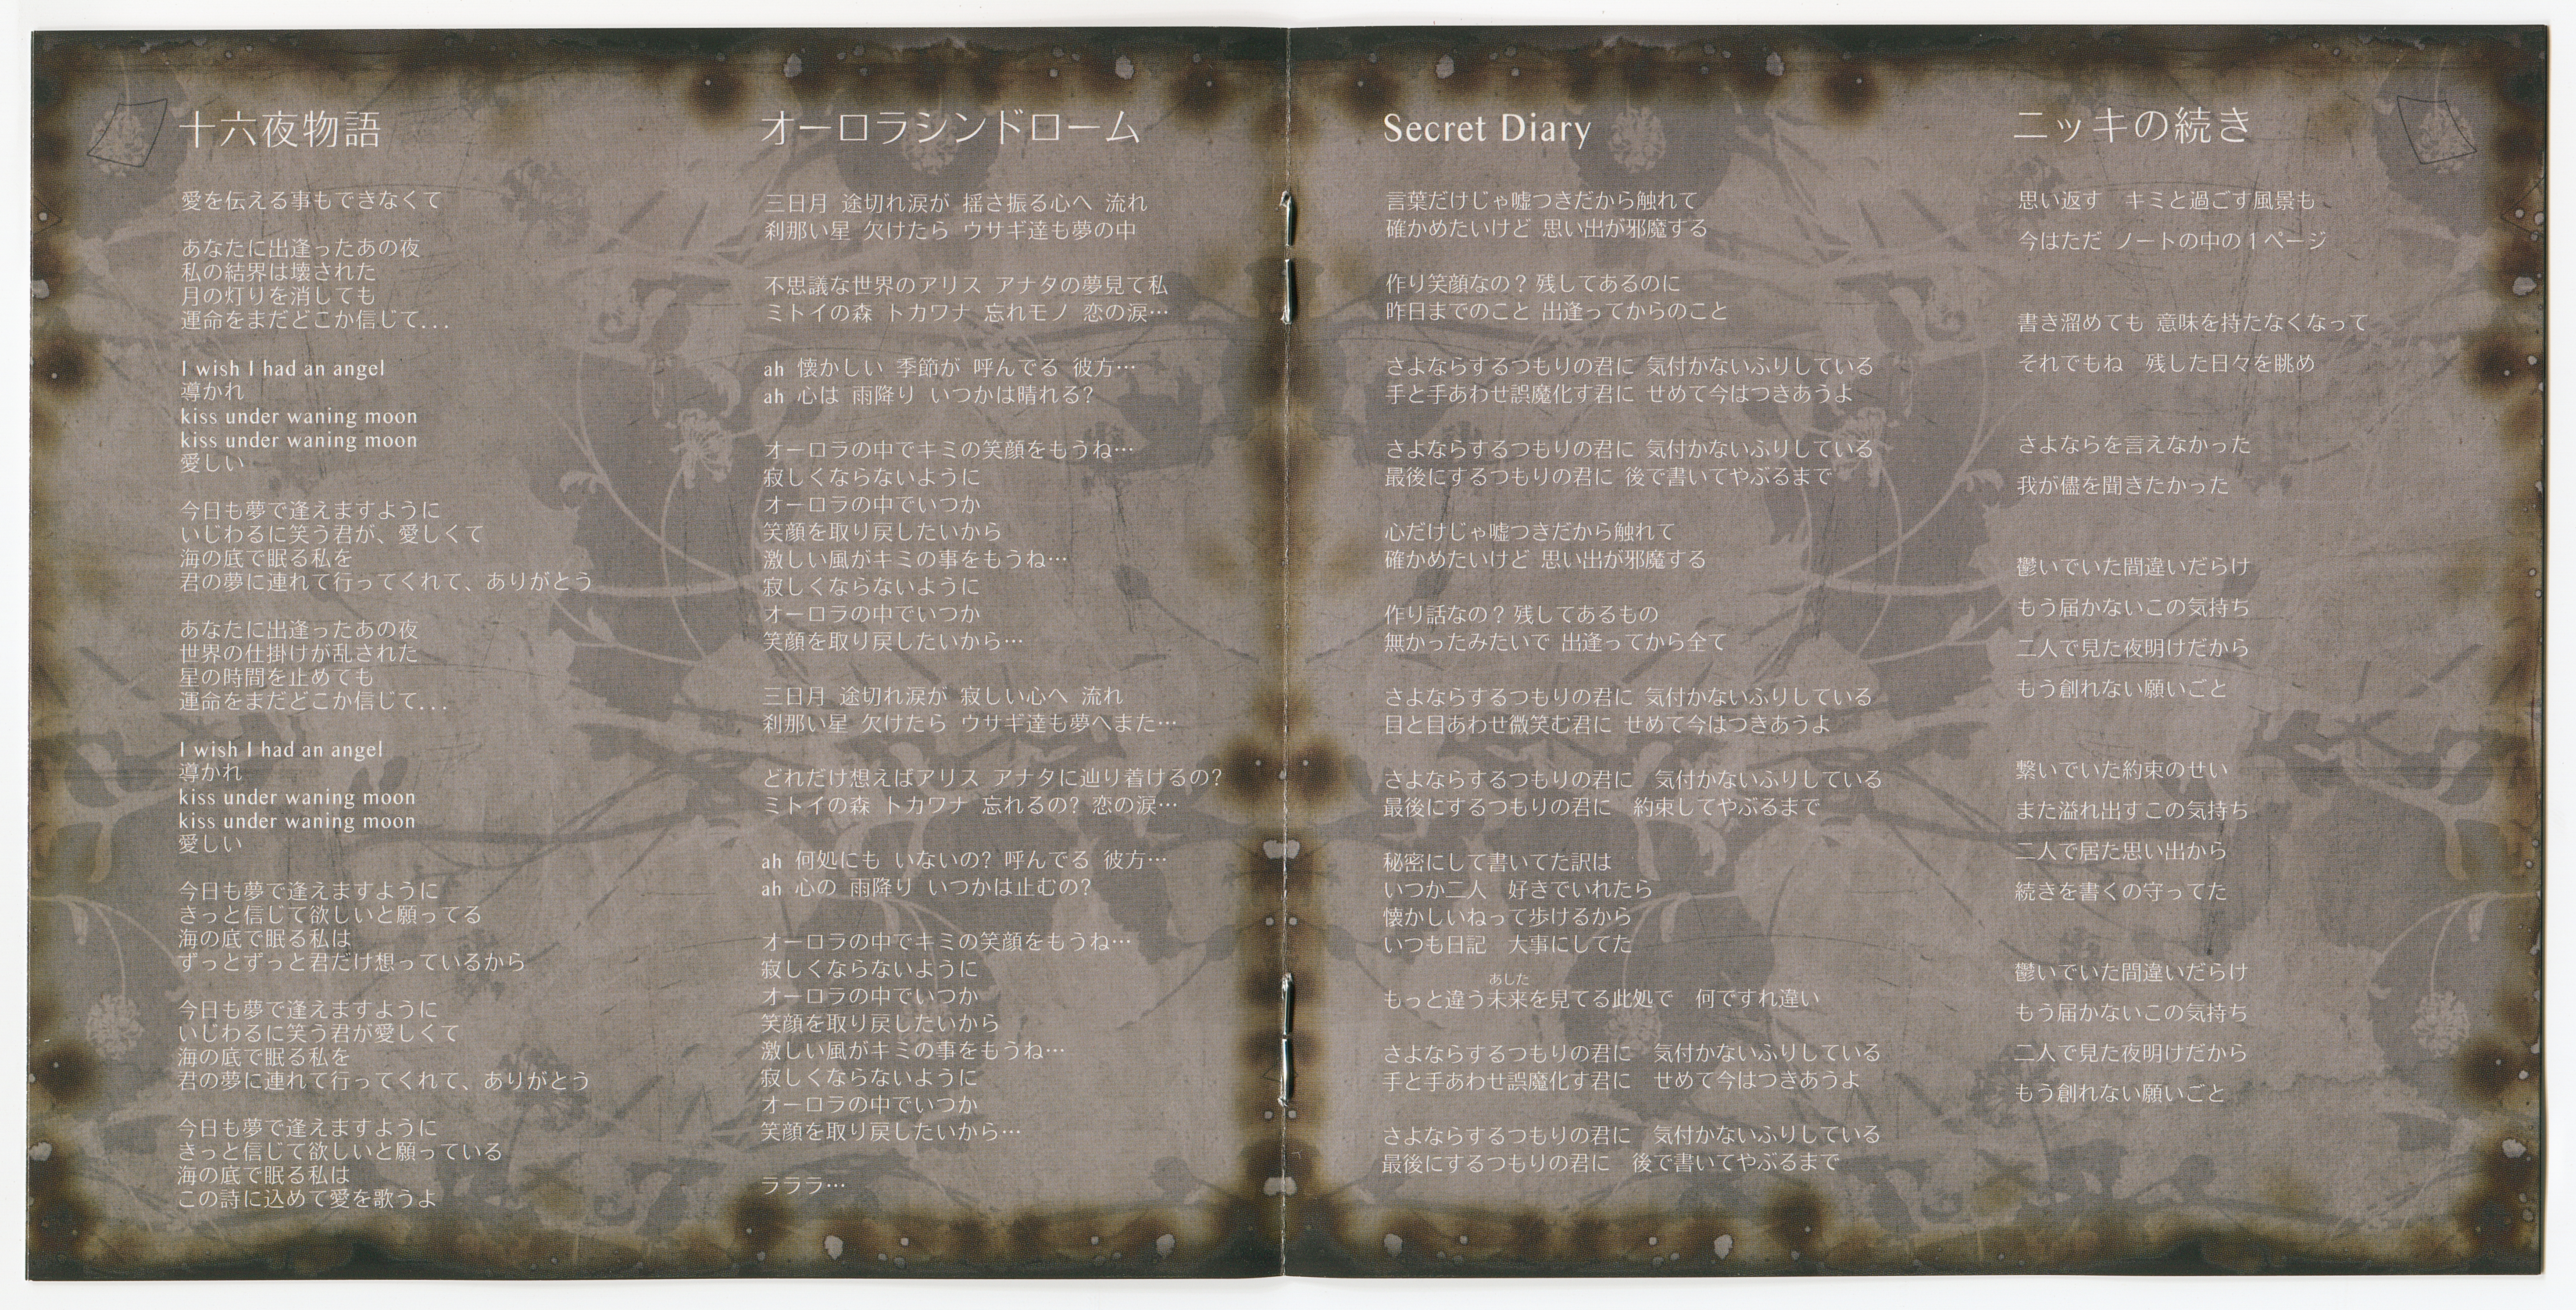 十六夜物語
愛を伝える事もできなくて
あなたに出逢ったあの夜
私の結界は壊された
月の灯りを消しても
運命をまだどこか信じて...
I wish I had an angel
導かれ
kiss under waning moon
kiss under waning moon
愛しい
今日も夢で逢えますように
いじわるに笑う君が、愛しくて
海の底で眠る私を
君の夢に連れて行ってくれて、ありがとう
あなたに出逢ったあの夜
世界の仕掛けが乱された
星の時間を止めても
運命をまだどこか信じて...
I wish I had an angel
導かれ
kiss under waning moon
kiss under waning moon
愛しい
今日も夢で逢えますように
きっと信じて欲しいと願ってる
海の底で眠る私は
ずっとずっと君だけ想っているから
今日も夢で逢えますように
いじわるに笑う君が愛しくて
海の底で眠る私を
君の夢に連れて行ってくれて、ありがとう
今日も夢で逢えますように
きっと信じて欲しいと願っている
海の底で眠る私は
この詩に込めて愛を歌うよ
オーロラシンドローム
三日月 途切れ涙が 揺さ振る心へ 流れ
刹那い星 欠けたら ウサギ達も夢の中
不思議な世界のアリス アナタの夢見て私
ミトイの森 トカワナ 忘れモノ 恋の涙…
ah 懐かしい 季節が 呼んでる 彼方…
ah 心は 雨降り いつかは晴れる?
オーロラの中でキミの笑顔をもうね…
寂しくならないように
オーロラの中でいつか
笑顔を取り戻したいから
激しい風がキミの事をもうね…
寂しくならないように
オーロラの中でいつか
笑顔を取り戻したいから…
三日月 途切れ涙が 寂しい心へ 流れ
刹那い星 欠けたら ウサギ達も夢へまた…
どれだけ想えばアリス アナタに辿り着けるの?
ミトイの森 トカワナ 忘れるの? 恋の涙…
ah 何処にも いないの? 呼んでる 彼方…
ah 心の 雨降り いつかは止むの?
オーロラの中でキミの笑顔をもうね…
寂しくならないように
オーロラの中でいつか
笑顔を取り戻したいから
激しい風がキミの事をもうね…
寂しくならないように
オーロラの中でいつか
笑顔を取り戻したいから…
ラララ…
Secret Diary
言葉だけじゃ嘘つきだから触れて
確かめたいけど 思い出が邪魔する
作り笑顔なの? 残してあるのに
昨日までのこと 出逢ってからのこと
さよならするつもりの君に 気付かないふりしている
手と手あわせ誤魔化す君に せめて今はつきあうよ
さよならするつもりの君に 気付かないふりしている
最後にするつもりの君に 後で書いてやぶるまで
心だけじゃ嘘つきだから触れて
確かめたいけど 思い出が邪魔する
作り話なの? 残してあるもの
無かったみたいで 出逢ってから全て
さよならするつもりの君に 気付かないふりしている
目と目あわせ微笑む君に せめて今はつきあうよ
さよならするつもりの君に 気付かないふりしている
最後にするつもりの君に 約束してやぶるまで
秘密にして書いてた訳は
いつか二人 好きでいれたら
懐かしいねって歩けるから
いつも日記 大事にしてた
あした
もっと違う未来を見てる此処で 何ですれ違い
さよならするつもりの君に 気付かないふりしている
手と手あわせ誤魔化す君に せめて今はつきあうよ
さよならするつもりの君に 気付かないふりしている
最後にするつもりの君に 後で書いてやぶるまで
ニッキの続き
思い返す キミと過ごす風景も
今はただ ノートの中の1ページ
書き溜めても 意味を持たなくなって
それでもね 残した日々を眺め
さよならを言えなかった
我が儘を聞きたかった
鬱いでいた間違いだらけ
もう届かないこの気持ち
二人で見た夜明けだから
もう創れない願いごと
繋いでいた約束のせい
また溢れ出すこの気持ち
二人で居た思い出から
続きを書くの守ってた
鬱いでいた間違いだらけ
もう届かないこの気持ち
二人で見た夜明けだから
もう創れない願いごと